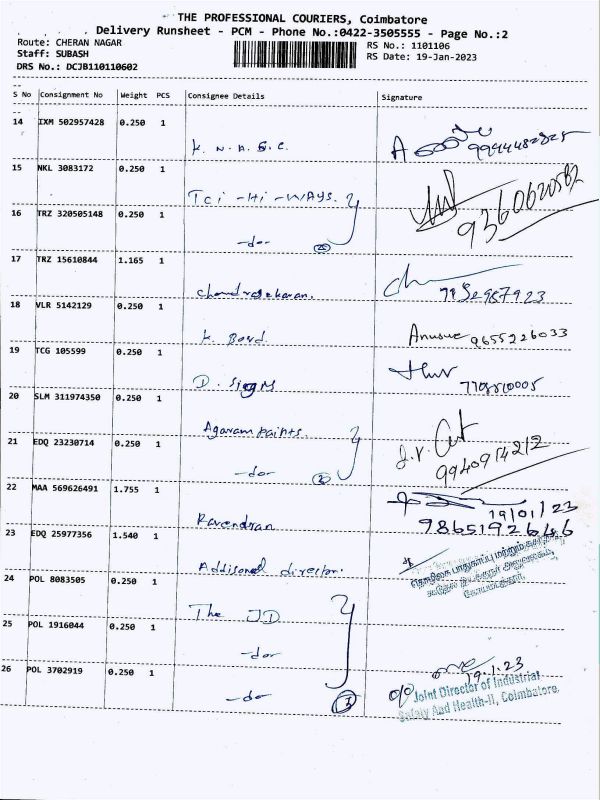 THE PROFESSIONAL COURIERS, Coimbatore
Delivery Runsheet - PCM - Phone No.:0422-3505555 - Page No.:2
Route: CHERAN NAGAR
Staff: SUBASH
DRS No.: DCJB110110602
RS No.: 1101106
RS Date: 19-Jan-2023
S No Consignment No Weight PCS Consignee Details Signature
14 IXM 502957428 0.250 1
K. N. A. S. C. 9944482825
15 NKL 3083172 0.250 1
Tci - Hi - WAYS. 9360620582
16 TRZ 320505148 0.250 1
-do-
17 TRZ 15610844 1.165 1
Chandrasekaran.
18 VLR 5142129 0.250 1
K. Boyd. Anusue 9655226033
19 TCG 105599 0.250 1
D. Signs
20 SLM 311974350 0.250 1
Agaram Paints.
21 EDQ 23230714 0.250 1
-do- 9940914212
22 MAA 569626491 1.755 1
Ravendran 19/01/23
9865192646
23 EDQ 25977356 1.540 1
Addisonal director.
24 POL 8083505 0.250 1
The JD
25 POL 1916044 0.250 1
-do-
26 POL 3702919 0.250 1
-do- 3
19.1.23
o/o Joint Director of Industrial
Safety And Health-II, Coimbatore.